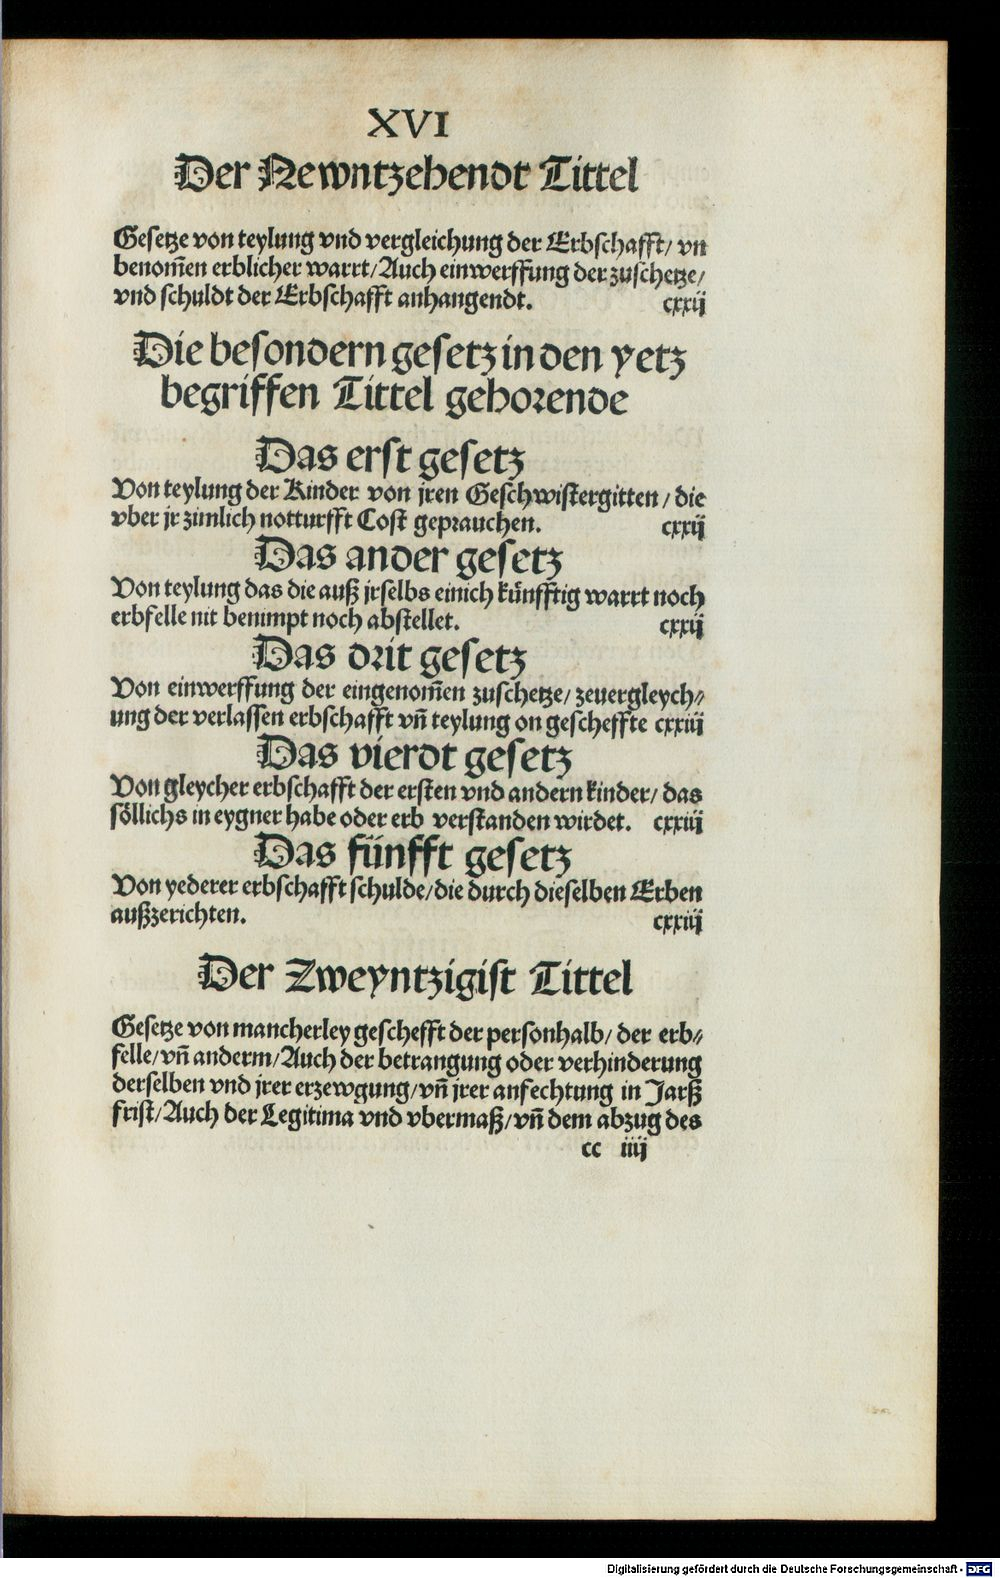 XVI
Der Newntzehendt Tittel
Gesetze von teylung vnd vergleichung der Erbschafft/ vn
benom̄en erblicher warrt/Auch einwerffung der zuschetze/
vnd schuldt der Erbschafft anhangendt. cxxij
Die besondern gesetz in den yetz
begriffen Tittel gehorende
Das erst gesetz
Von teylung der Kinder von jren Geschwistergitten / die
vber jr zimlich notturfft Cost geprauchen. cxxij
Das ander gesetz
Von teylung das die auß jrselbs einich künfftig warrt noch
erbfelle nit benimpt noch abstellet. cxxij
Das drit gesetz
Von einwerffung der eingenom̄en zuschetze/ zeuergleych⸗
ung der verlassen erbschafft vn̄ teylung on gescheffte cxxiij
Das vierdt gesetz
Von gleycher erbschafft der ersten vnd andern kinder/ das
söllichs in eygner habe oder erb verstanden wirdet. cxxiij
Das fünfft gesetz
Von yederer erbschafft schulde/die durch dieselben Erben
außzerichten. cxxiij
Der Zweyntzigist Tittel
Gesetze von mancherley geschefft der personhalb/ der erb⸗
felle/vn̄ anderm/Auch der betrangung oder verhinderung
derselben vnd jrer erzewgung/vn̄ jrer anfechtung in Jarß
frist/Auch der Legitima vnd vbermaß/vn̄ dem abzug des
cc iiij
Digitalisierung gefördert durch die Deutsche Forschungsgemeinschaft - DFG